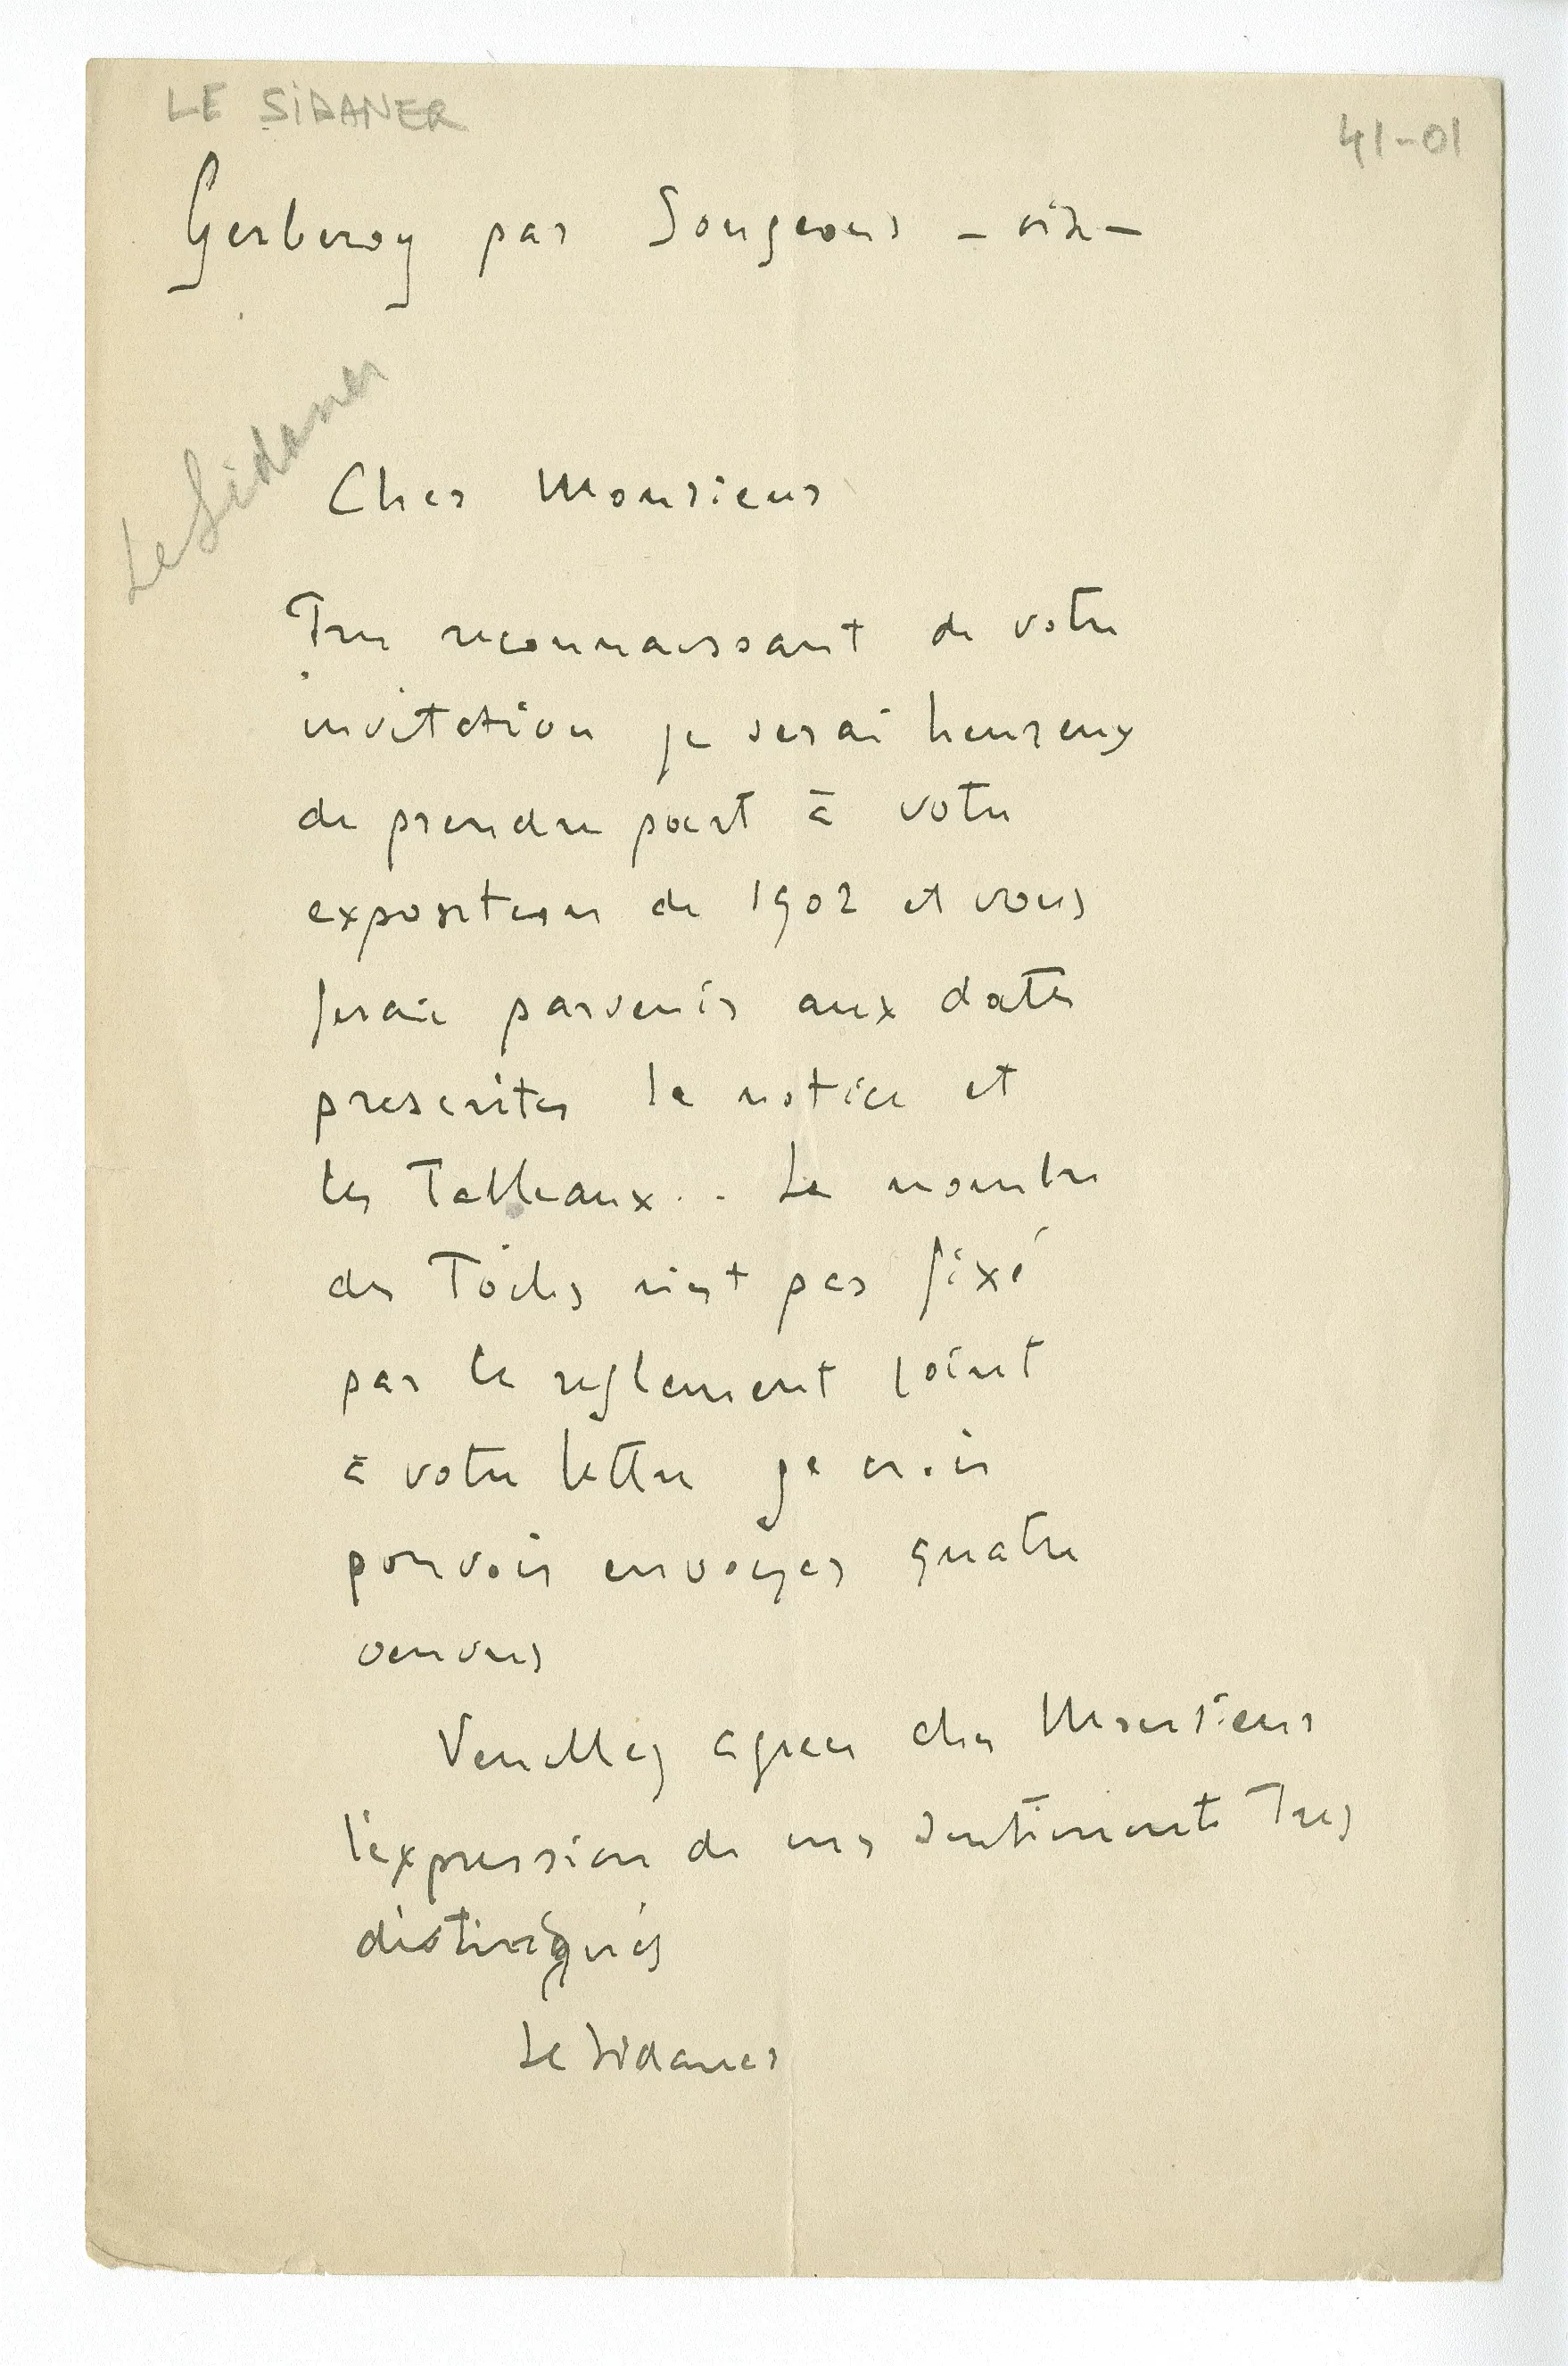 LE SIDANER
41-01
Gerberoy par Songeons - oise -
Le Sidaner
Cher Monsieur
Tres reconnaissant de votre
invitation je serai heureux
de prendre part à votre
exposition de 1902 et vous
ferai parvenir aux dates
prescrites la notice et
les Tableaux. . Le nombre
des Toiles n'est pas fixé
par le reglement joint
à votre lettre je crois
pouvoir envoyer quatre
oeuvres
Veuillez agreer cher Monsieur
l'expression de mes sentiments Tres
distingués
Le Sidaner